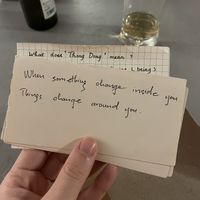 What does "Thing Dong" mean?
being)
When something change inside you
Things change around you.